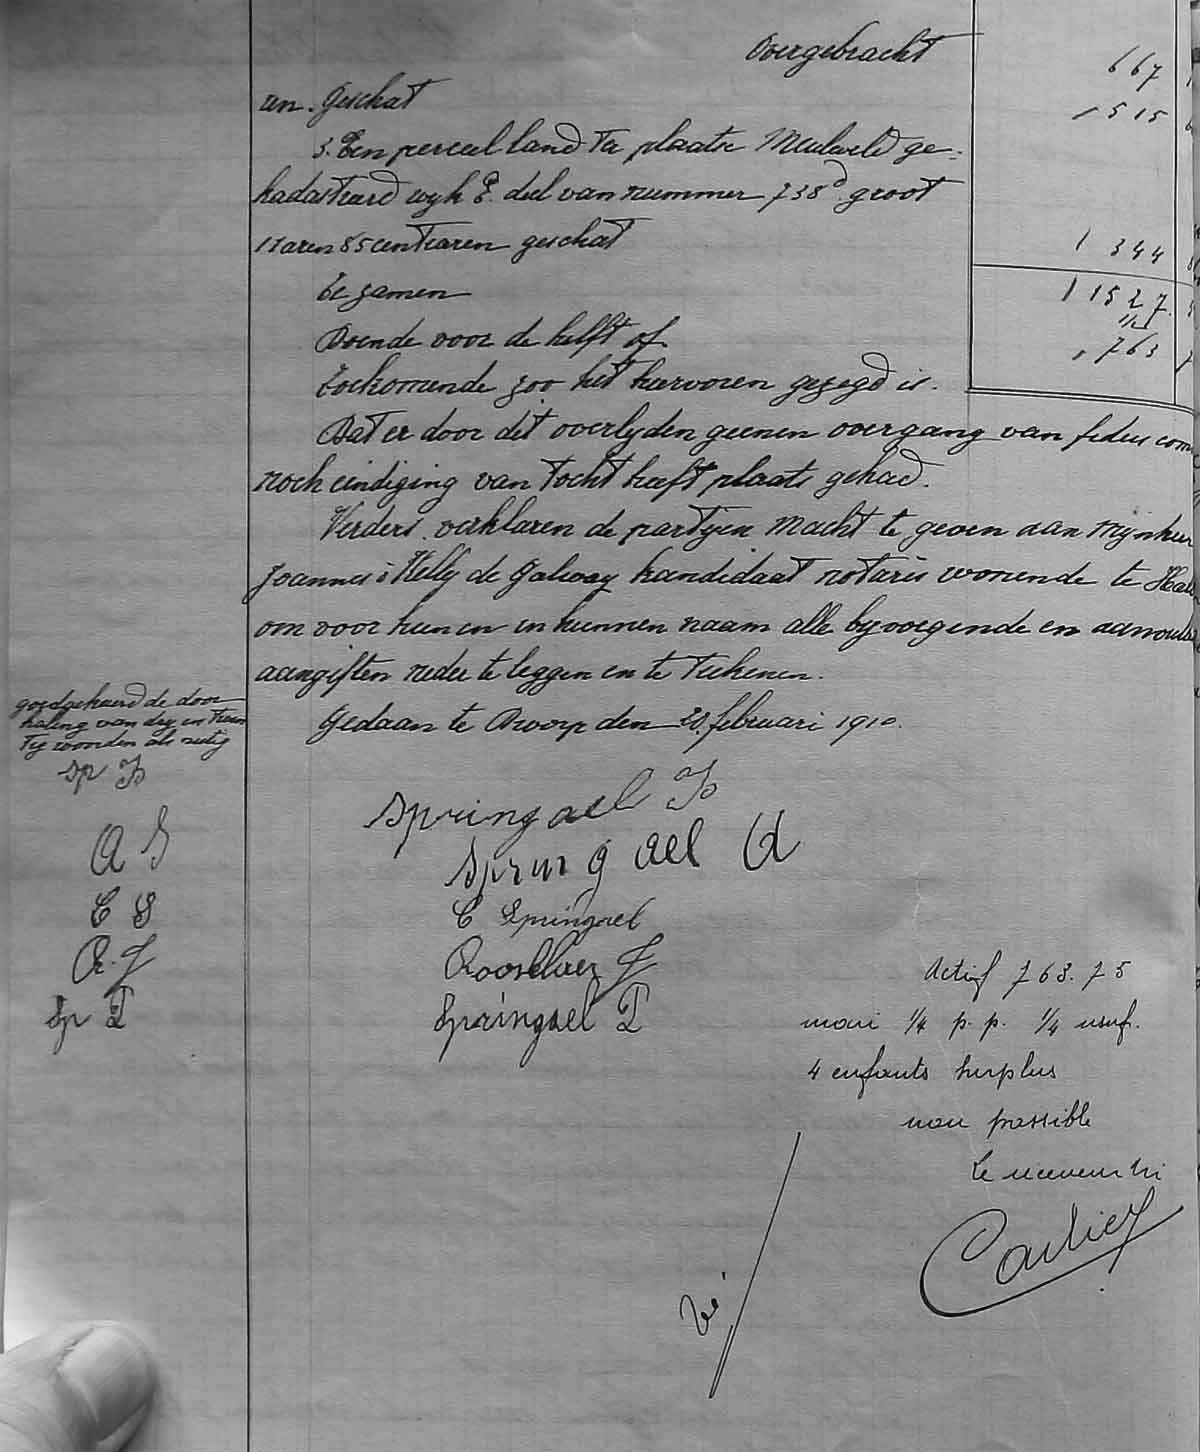 Overgebracht 667
ren. Geschat 515
3. Een perceel land ter plaatse Meuleveld ge-
kadastreerd wijk E. deel van nummer 738d groot
11 aren 85 centiaren geschat 344
te zamen 1527
Doende voor de helft of 763
toekomende zoo het hiervoren gezegd is.
Dat er door dit overlyden geenen overgang van fideis com
noch eindiging van tocht heeft plaats gehad.
Verders verklaren de partyen macht te geven aan Mynheer
Joannes o'Kelly de Galway kandidaat notaris wonende te Hal
om voor hun en in hunnen naam alle byvoegende en
aangiften neder te leggen en te teekenen.
Gedaan te Dworp den 20 februari 1910.
goedgekeurd de door
haling van dry en twin
tig woorden als nietig
Sp B
A S
C S
R. J
Sp T
Springael B
Springael A
C Springael
Rooselaer J
Springael T
Actif 763.75
mari 1/4 p.p. 1/4 usuf.
4 enfants surplus
non passible
Le receveur
Carlier